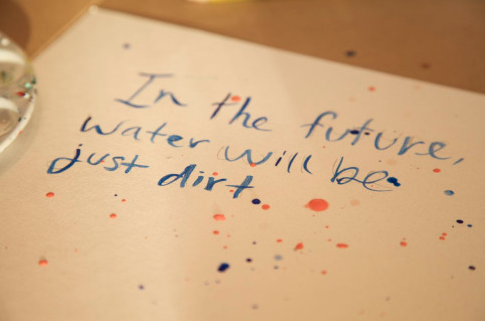 In the future,
water will be
just dirt.